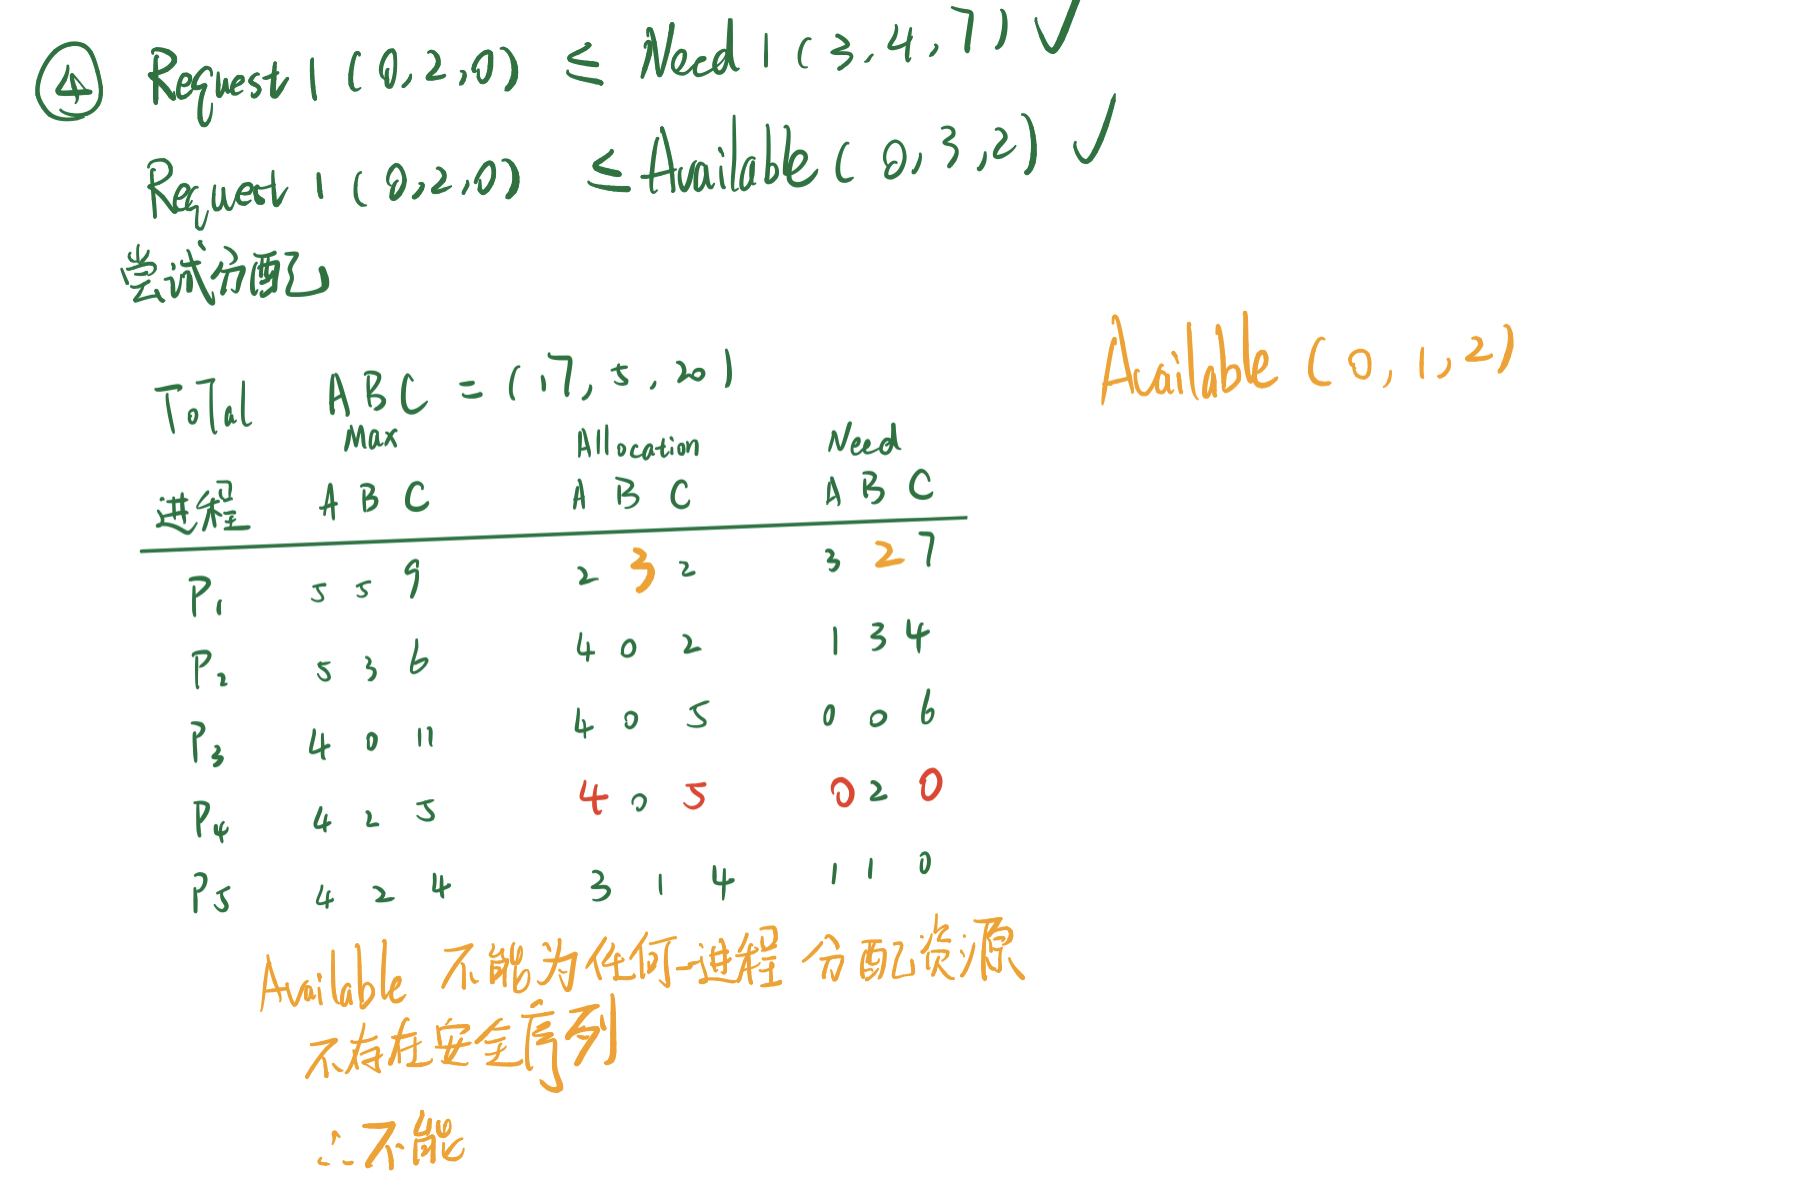 ④ Request 1 (0,2,0) ≤ Need 1 (3,4,7) ✓
Request 1 (0,2,0) ≤ Available (0,3,2) ✓
尝试分配
Available (0,1,2)
ToTal ABC = (17,5,20)
Max Allocation Need
进程 A B C A B C A B C
P1 5 5 9 2 3 2 3 2 7
P2 5 3 6 4 0 2 1 3 4
P3 4 0 11 4 0 5 0 0 6
P4 4 2 5 4 0 5 0 2 0
P5 4 2 4 3 1 4 1 1 0
Available 不能为任何进程分配资源
不存在安全序列
∴不能